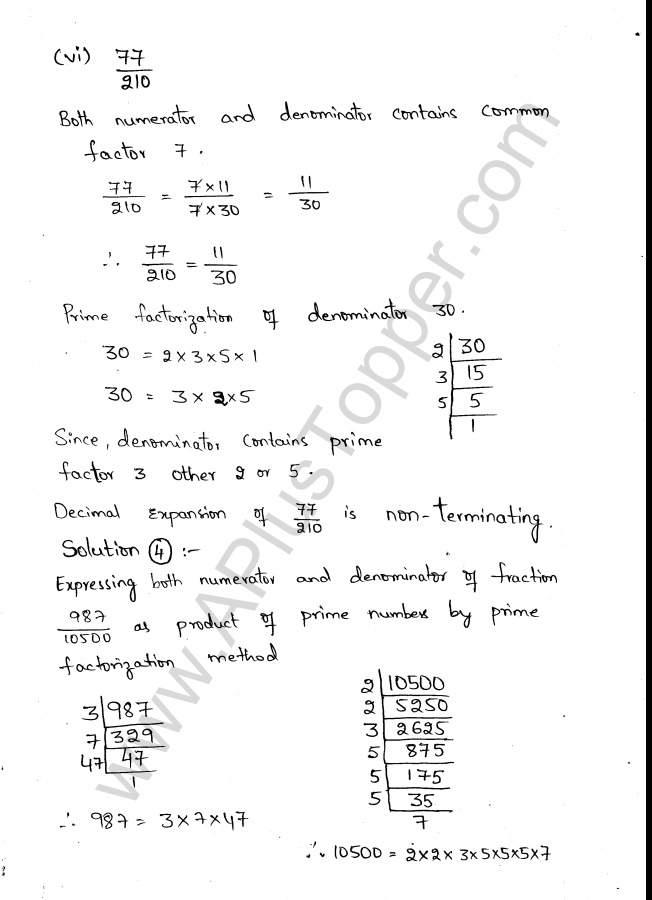 (vi) 77/210
Both numerator and denominator contains common
factor 7.
77/210 = 7×11/7×30 = 11/30
∴ 77/210 = 11/30
Prime factorization of denominator 30.
30 = 2×3×5×1
30 = 3×2×5
2 | 30
3 | 15
5 | 5
1
Since, denominator contains prime
factor 3 other 2 or 5.
Decimal Expansion of 77/210 is non-terminating.
Solution ④ :-
Expressing both numerator and denominator of fraction
987/10500 as product of prime numbers by prime
factorization method
3 | 987
7 | 329
47 | 47
1
∴ 987 = 3×7×47
2 | 10500
2 | 5250
3 | 2625
5 | 875
5 | 175
5 | 35
7
∴ 10500 = 2×2×3×5×5×5×7
www.APlusTopper.com